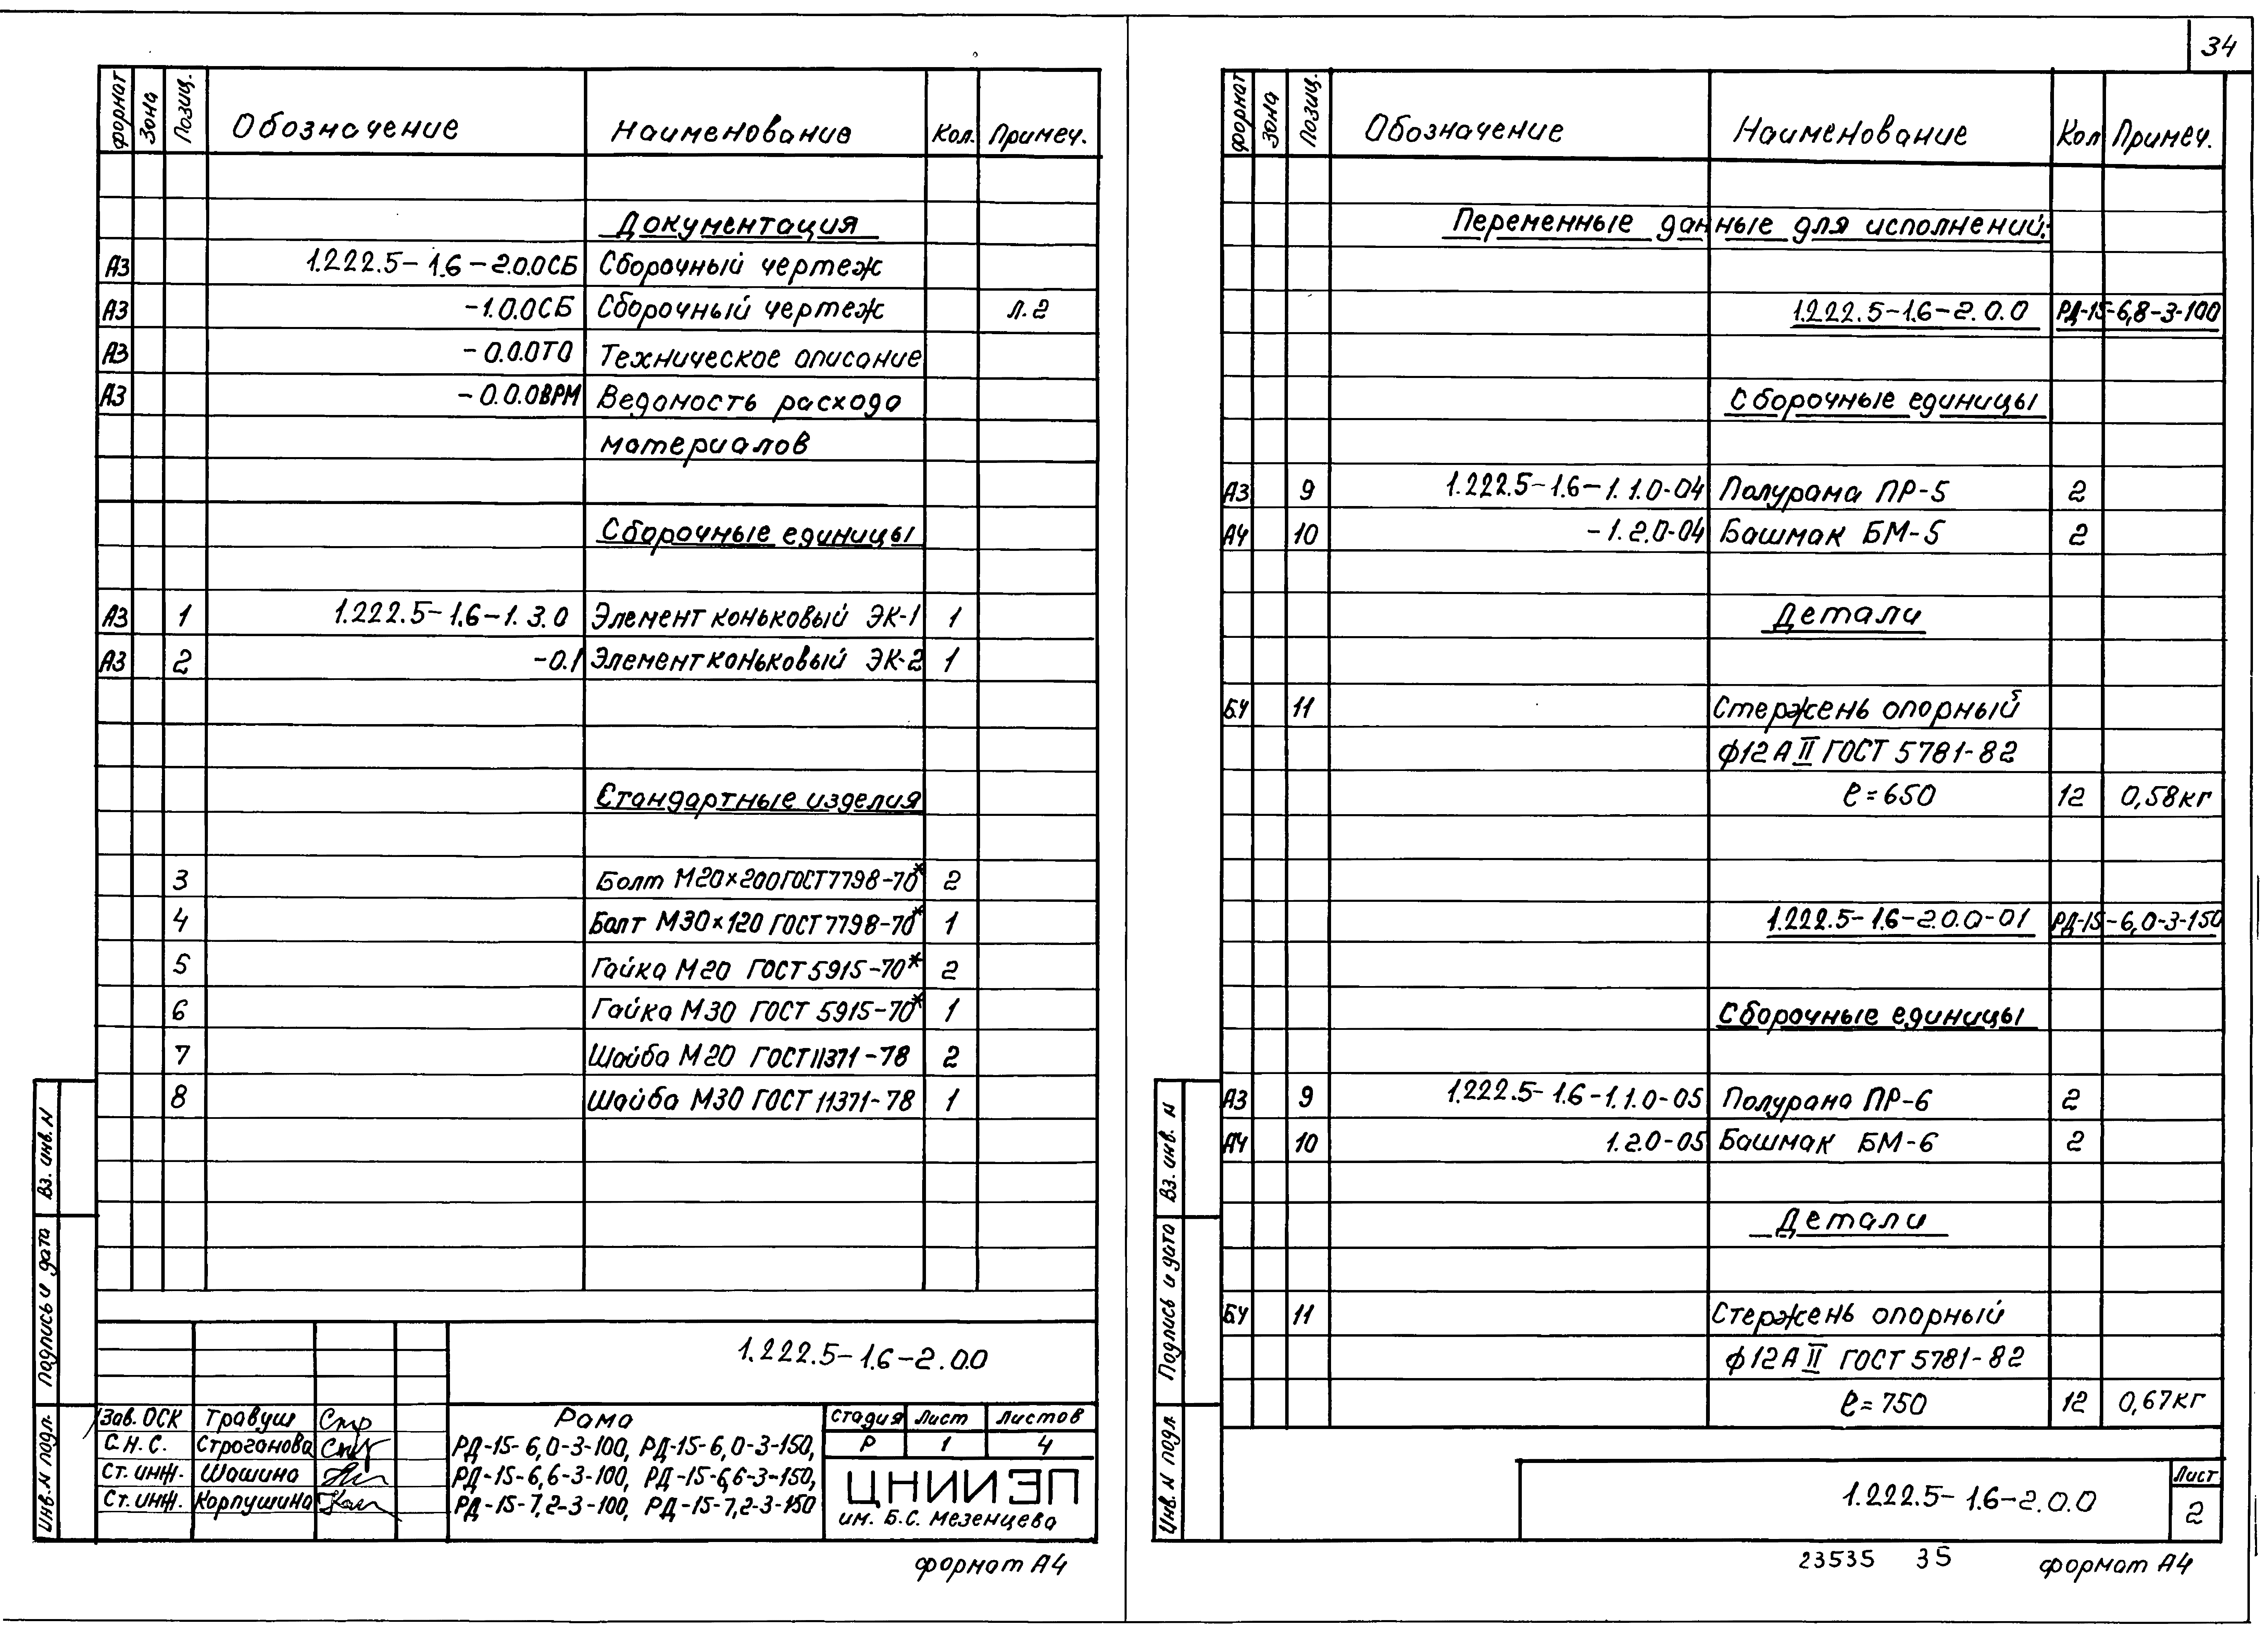 34
формат Зона Позиц. Обозначение Наименование Кол. Примеч.
Документация
А3 1.222.5-1.6-2.0.0СБ Сборочный чертеж
А3 -1.0.0СБ Сборочный чертеж л.2
А3 -0.0.0ТО Техническое описание
А3 -0.0.0ВРМ Ведомость расхода
материалов
Сборочные единицы
А3 1 1.222.5-1.6-1.3.0 Элемент коньковый ЭК-1 1
А3 2 -0.1 Элемент коньковый ЭК-2 1
Стандартные изделия
3 Болт М20×200 ГОСТ 7798-70* 2
4 Болт М30×120 ГОСТ 7798-70* 1
5 Гайка М20 ГОСТ 5915-70* 2
6 Гайка М30 ГОСТ 5915-70* 1
7 Шайба М20 ГОСТ 11371-78 2
8 Шайба М30 ГОСТ 11371-78 1
Вз. инв. N
Подпись и дата
Инв. N подл.
1.222.5-1.6-2.0.0
Зав. ОСК Травуш
С.Н.С. Строганова
Ст. инж. Шашина
Ст. инж. Корпушина
Рама
РД-15-6,0-3-100, РД-15-6,0-3-150,
РД-15-6,6-3-100, РД-15-6,6-3-150,
РД-15-7,2-3-100, РД-15-7,2-3-150
Стадия Лист Листов
Р 1 4
ЦНИИЭП
им. Б.С. Мезенцева
формат А4
формат Зона Позиц. Обозначение Наименование Кол Примеч.
Переменные данные для исполнений:
1.222.5-1.6-2.0.0 РД-15-6,8-3-100
Сборочные единицы
А3 9 1.222.5-1.6-1.1.0-04 Полурама ПР-5 2
А4 10 -1.2.0-04 Башмак БМ-5 2
Детали
БЧ 11 Стержень опорный
ф12АII ГОСТ 5781-82
ℓ=650 12 0,58кг
1.222.5-1.6-2.0.0-01 РД-15-6,0-3-150
Сборочные единицы
А3 9 1.222.5-1.6-1.1.0-05 Полурама ПР-6 2
А4 10 1.2.0-05 Башмак БМ-6 2
Детали
БЧ 11 Стержень опорный
ф12АII ГОСТ 5781-82
ℓ=750 12 0,67кг
Вз. инв. N
Подпись и дата
Инв. N подл.
1.222.5-1.6-2.0.0
Лист
2
23535 35 формат А4